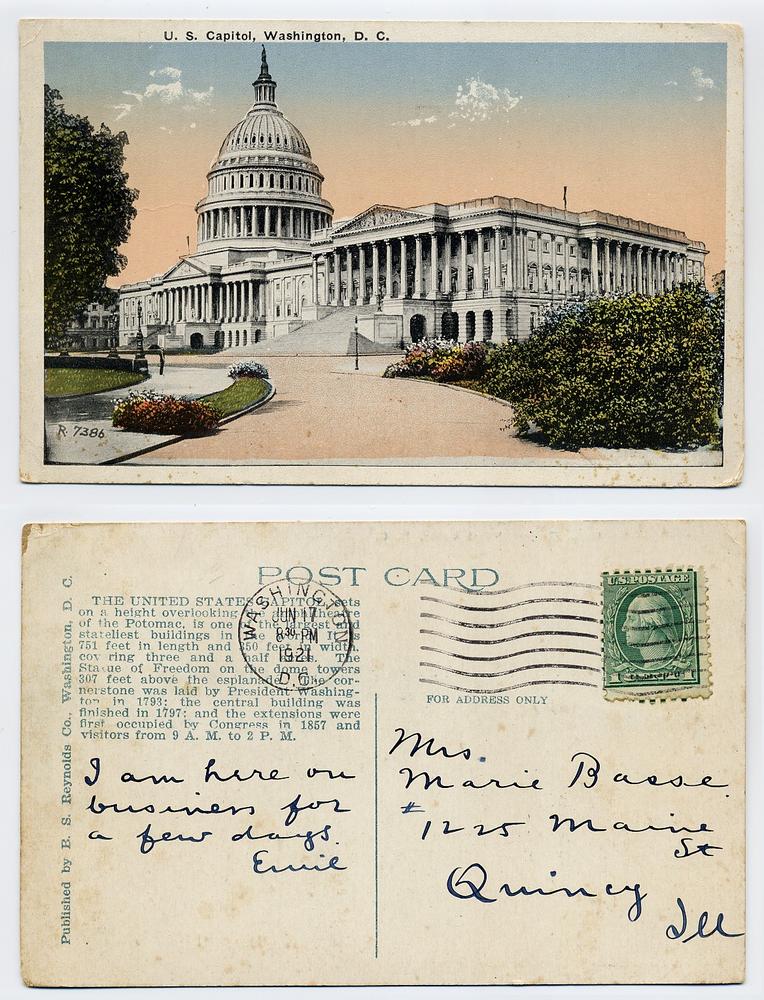 U. S. Capitol, Washington, D. C.
R. 7386
Published by B. S. Reynolds Co., Washington, D. C.
POST CARD
THE UNITED STATES CAPITOL sets
on a height overlooking
of the Potomac, is one of the largest and
stateliest buildings in the It is
751 feet in length and 350 feet in width,
covering three and a half The
Statue of Freedom on the dome towers
307 feet above the esplanade. The cor-
nerstone was laid by President Washing-
ton in 1793; the central building was
finished in 1797; and the extensions were
first occupied by Congress in 1857 and
visitors from 9 A. M. to 2 P. M.
WASHINGTON
JUN 17
8 30 PM
1921
D.C.
U.S. POSTAGE
FOR ADDRESS ONLY
I am here on
business for
a few days.
Emil
Mrs.
Marie Basse.
# 1225 Maine
St
Quincy
Ill